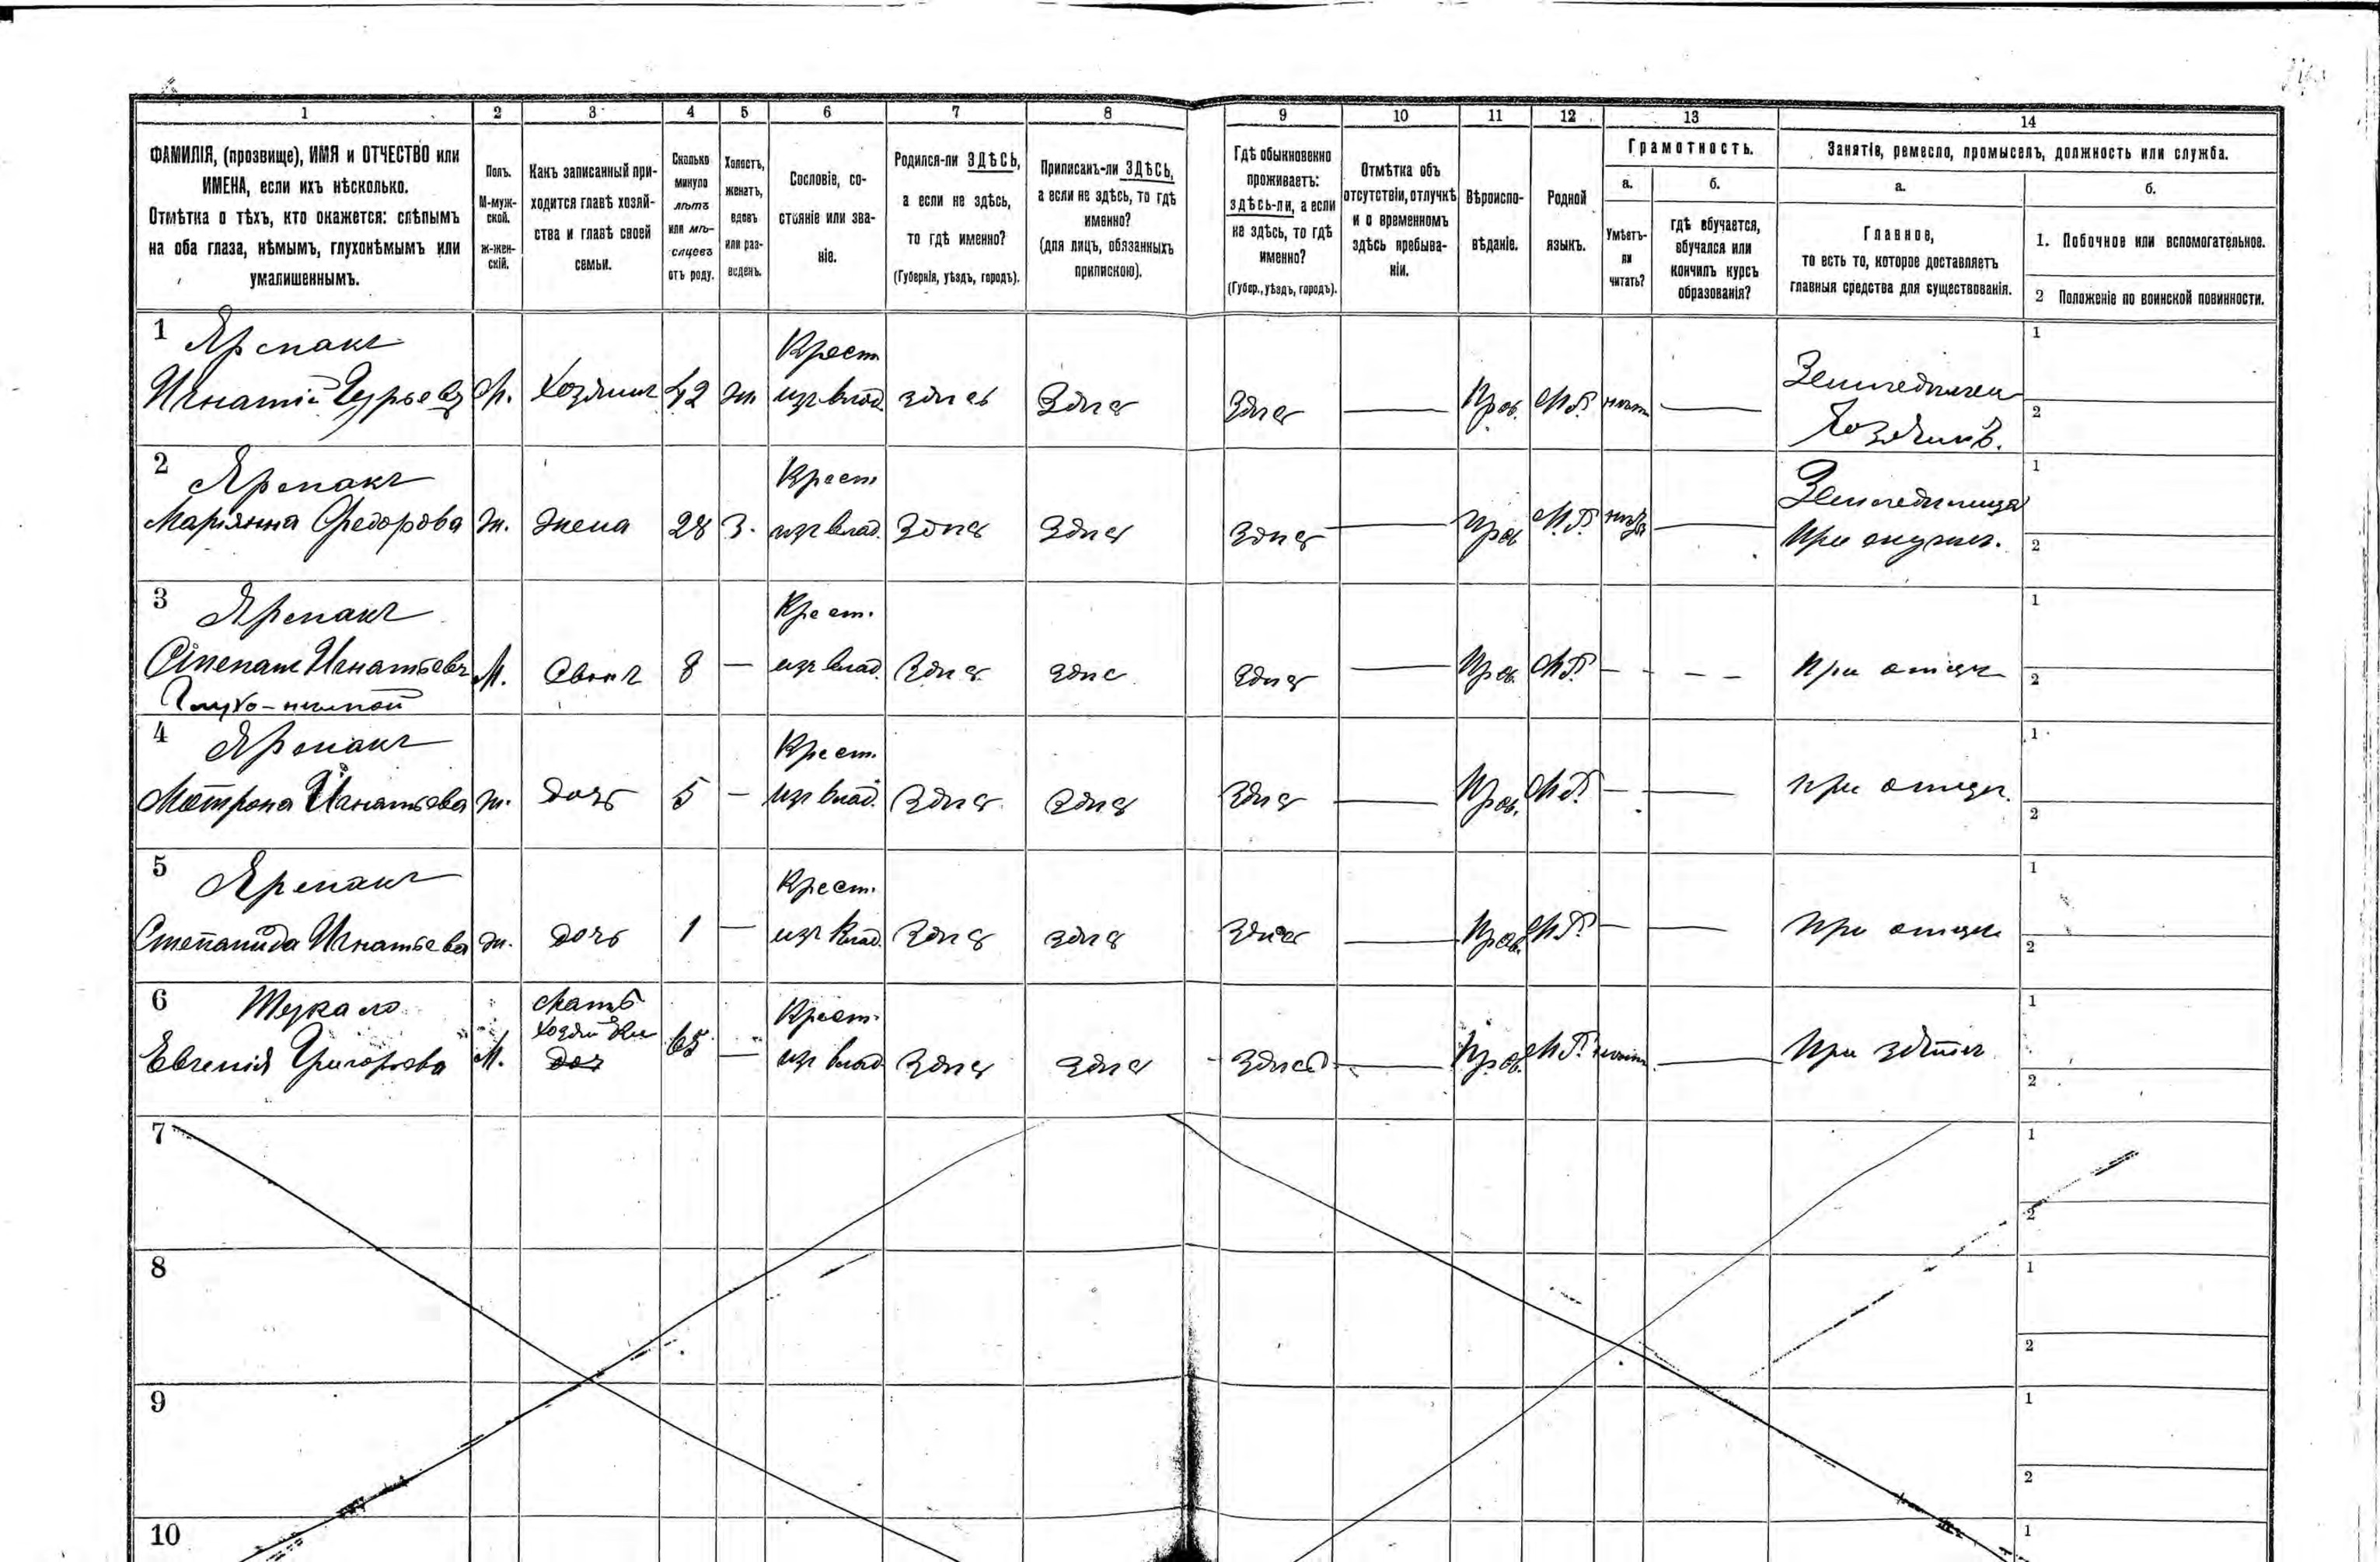 1 2 3 4 5 6 7 8 9 10 11 12 13 14
ФАМИЛІЯ, (прозвище), ИМЯ и ОТЧЕСТВО или
ИМЕНА, если ихъ нѣсколько.
Отмѣтка о тѣхъ, кто окажется: слѣпымъ
на оба глаза, нѣмымъ, глухонѣмымъ или
умалишеннымъ.
Полъ.
М-муж-
ской.
ж-жен-
скій.
Какъ записанный при-
ходится главѣ хозяй-
ства и главѣ своей
семьи.
Сколько
минуло
лѣтъ
или мѣ-
сяцевъ
отъ роду.
Холостъ,
женатъ,
вдовъ
или раз-
веденъ.
Сословіе, со-
стояніе или зва-
ніе.
Родился-ли ЗДѢСЬ,
а если не здѣсь,
то гдѣ именно?
(Губернія, уѣздъ, городъ).
Приписанъ-ли ЗДѢСЬ,
а если не здѣсь, то гдѣ
именно?
(для лицъ, обязанныхъ
припискою).
Гдѣ обыкновенно
проживаетъ:
здѣсь-ли, а если
не здѣсь, то гдѣ
именно?
(Губер., уѣздъ, городъ).
Отмѣтка объ
отсутствіи, отлучкѣ
и о временномъ
здѣсь пребыва-
ніи.
Вѣроиспо-
вѣданіе.
Родной
языкъ.
Грамотность.
а.
Умѣетъ-
ли
читать?
б.
гдѣ обучается,
обучался или
кончилъ курсъ
образованія?
Занятіе, ремесло, промыселъ, должность или служба.
а.
Главное,
то есть то, которое доставляетъ
главныя средства для существованія.
б.
1. Побочное или вспомогательное.
2 Положеніе по воинской повинности.
1 Крест 1
Игнатій Гурьевъ М. Хозяинъ 42 ж. изъ влад. здѣсь Здѣс Здѣс — Прав. М.Р. нѣт — 2
Хозяинъ.
2 Крест 1
Маріянна Федорова ж. жена 28 З. изъ влад. Здѣс Здѣс Здѣс — Прав М.Р. — 2
3 Крест. 1
Степанъ Игнатьевъ М. Сынъ 8 — изъ влад. Здѣс здѣс Здѣс — Прав. М.Р. — — При отцѣ 2
Глухо-нѣмой
4 Крест. 1
Мотрона Игнатьева ж. дочь 5 — изъ влад. Здѣс Здѣс Здѣс — Прав. М.Р. — — при отцѣ. 2
5 Крест. 1
Степанида Игнатьева ж. дочь 1 — изъ влад. Здѣс здѣс Здѣс — Прав. М.Р. — — При отцѣ 2
6 Мать Крест. 1
Евгенія Григорьева М. 65 — изъ влад Здѣс Здѣс Здѣсь — Прав. М.Р. — 2
7 1
2
8 1
2
9 1
2
10 1